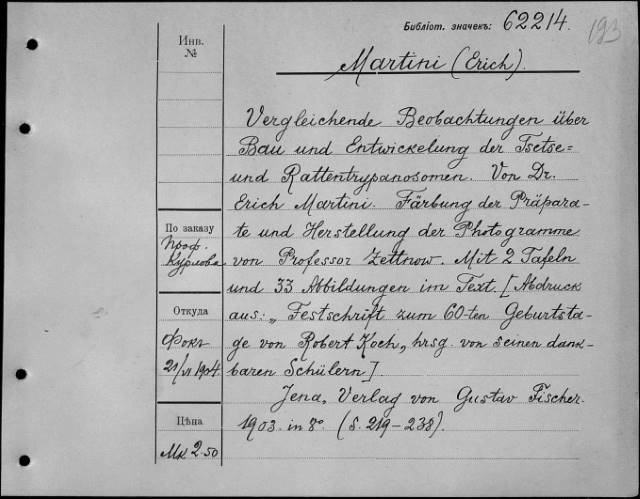 Библіот. значекъ: 62214.
193
Инв.
№
Martini (Erich).
Vergleichende Beobachtungen über
Bau und Entwickelung der Tsetse=
und Rattentrypanosomen. Von Dr.
Erich Martini. Färbung der Präpara-
te und Herstellung der Photogramme
von Professor Zettnow. Mit 2 Tafeln
und 33 Abbildungen im Text. [Abdruck
aus: „Festschrift zum 60-ten Geburtsta-
ge von Robert Koch„ hrsg. von seinen dank-
baren Schülern].
Jena, Verlag von Gustav Fischer.
1903. in 8°. (S. 219-238).
По заказу
Проф.
Курлова
Откуда
Фокъ
21/VI 1904.
Цѣна
Мк 2.50